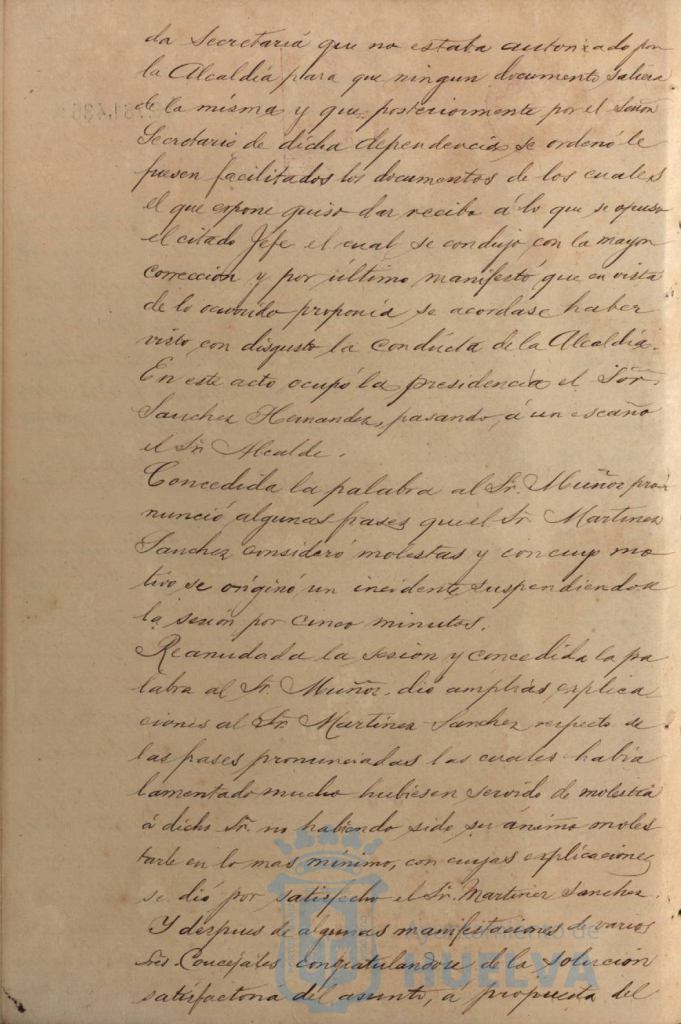 da Secretaría que no estaba autorizado por
la Alcaldía para que ningun documento saliera
de la misma y que posteriormente por el Señor
Secretario de dicha dependencia, se ordenó le
fuesen facilitados los documentos de los cuales
el que expone quiso dar recibo á lo que se opuso
el citado Jefe el cual se condujo con la mayor
corrección y por último manifestó que en vista
de lo ocurrido proponía se acordase haber
visto con disgusto la conducta de la Alcaldía.
En este acto ocupó la presidencia el Sor.
Sanchez Hernandez, pasando á un escaño
el Sr. Alcalde.
Concedida la palabra al Sr. Muñoz pro-
nunció algunas frases que el Sr. Martinez
Sanchez consideró molestas y con cuyo mo
tivo se originó un incidente suspendiendose
la sesión por cinco minutos.
Reanudada la sesion y concedida la pa
labra al Sr. Muñoz, dió amplias explica
ciones al Sr. Martinez Sanchez respecto de
las frases pronunciadas las cuales habia
lamentado mucho hubiesen servido de molestia
á dicho Sr. no habiendo sido su ánimo moles
tarle en lo mas mínimo, con cuyas explicaciones
se dió por satisfecho el Sr. Martinez Sanchez.
Y despues de algunas manifestaciones de varios
Sres. Concejales congratulandose de la solución
satisfactoria del asunto, á propuesta del
Ayuntamiento de
HUELVA